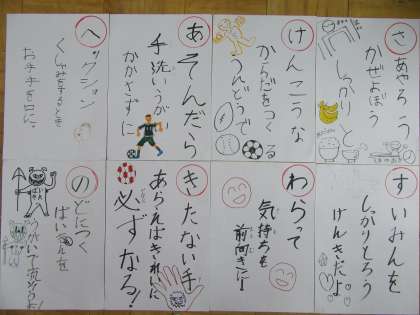 さあやろう
かぜよぼう
しっかりと
けんこうな
からだをつくる
うんどうで
あそんだら
手洗いうがい
かかさずに
ヘックション
くしゃみをするとき
お手手を口に。
すいみんを
しっかりとろう
げんきだよ
わらって
気持ちも
前向きに!
きたない手
あらればきれいに
必ずなる!
のどにつく
ばい菌を
うがいで流そうよ!
ばいきん